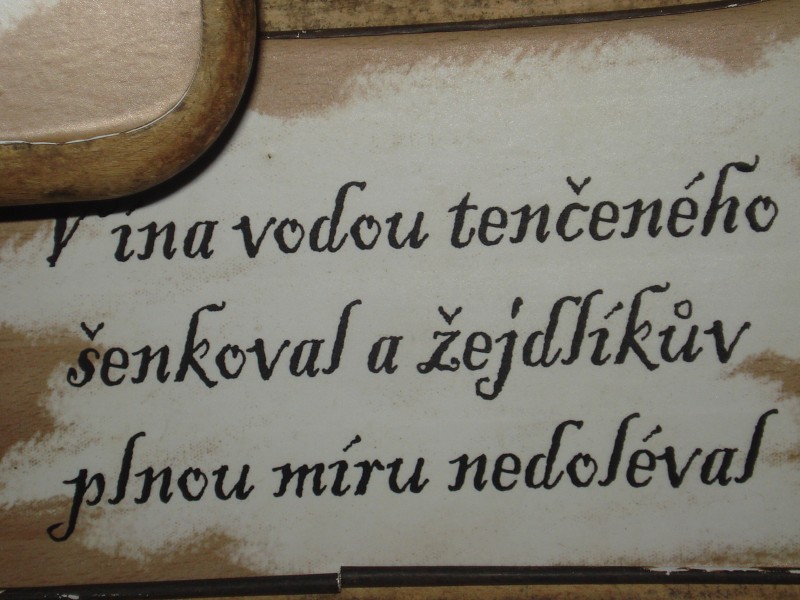 Vína vodou tenčeného
šenkoval a žejdlíkův
plnou míru nedoléval